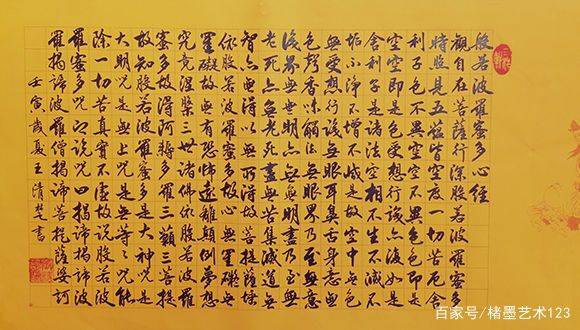 般若波羅蜜多心經
觀自在菩薩行深般若波羅蜜多
時照見五蘊皆空度一切苦厄舍
利子色不異空空不異色色即是
空空即是色受想行識亦復如是
舍利子是諸法空相不生不滅不
垢不淨不增不減是故空中無色
無受想行識無眼耳鼻舌身意無
色聲香味觸法無眼界乃至無意
識界無無明亦無無明盡乃至無
老死亦無老死盡無苦集滅道無
智亦無得以無所得故菩提薩埵
依般若波羅蜜多故心無罣礙無
罣礙故無有恐怖遠離顛倒夢想
究竟涅槃三世諸佛依般若波羅
蜜多故得阿耨多羅三藐三菩提
故知般若波羅蜜多是大神咒是
大明咒是無上咒是無等等咒能
除一切苦真實不虛故說般若波
羅蜜多咒即說咒曰揭諦揭諦波
羅揭諦波羅僧揭諦菩提薩婆訶
壬寅歲夏王清芝書
百家号/楮墨艺术123